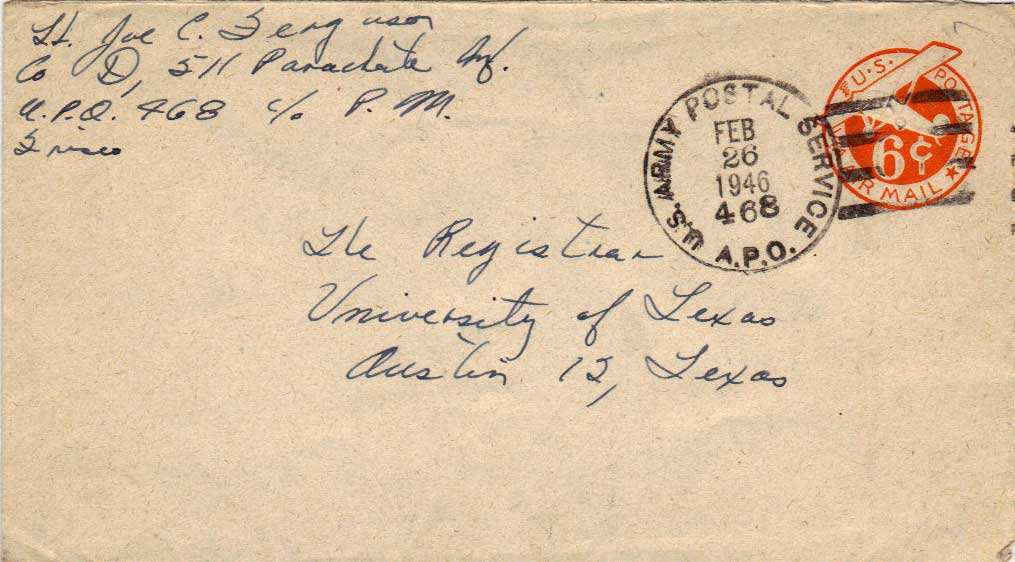 Lt. Joe C. Ferguson
Co D, 511 Parachute Inf.
A.P.O. 468 c/o P.M.
Frisco
U.S. ARMY POSTAL SERVICE
FEB
26
1946
468
A.P.O.
U.S. POSTAGE
6¢
VIA AIR MAIL
The Registrar
University of Texas
Austin 12, Texas